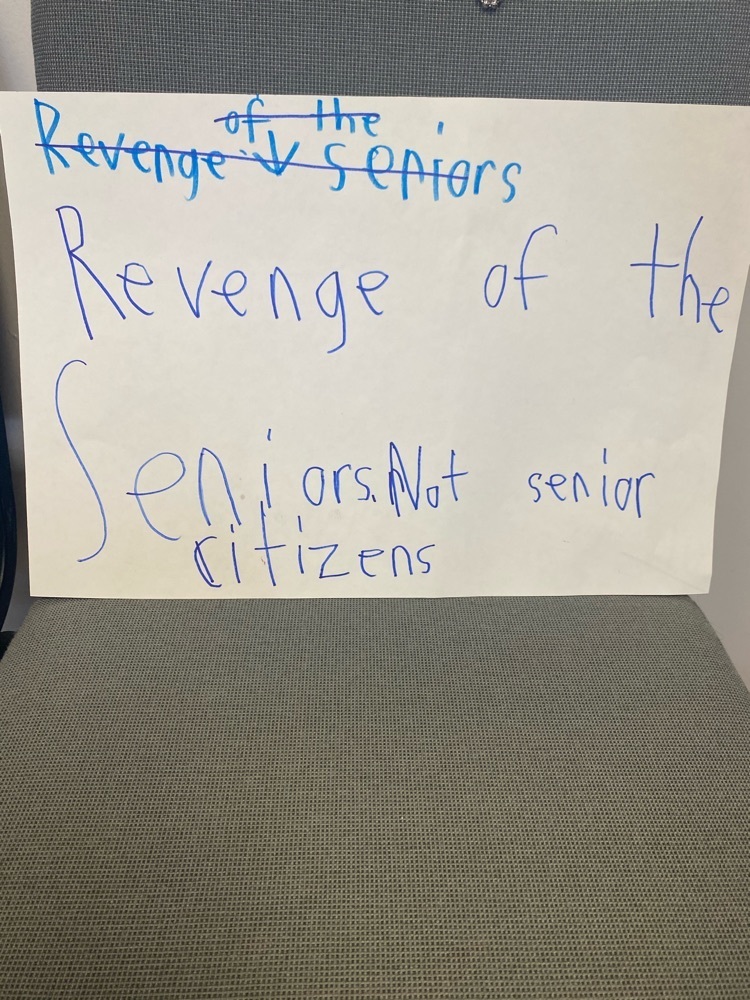 of the
Revenge seniors
Revenge of the
Seniors. Not senior
citizens